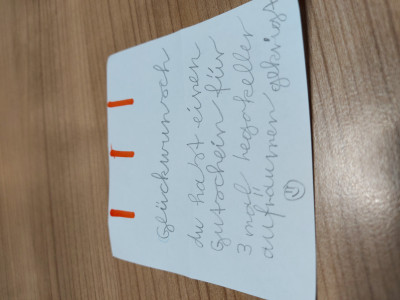 Glückwunsch
du hast einen
Gutschein für
3 mal legokeller
aufräumen gekriegt